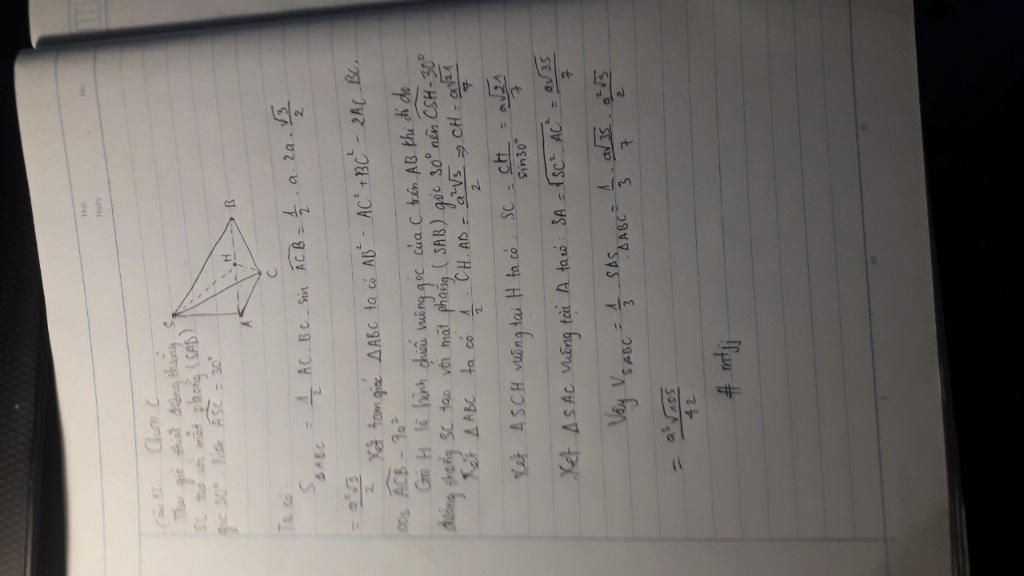 Thứ
Ngày
No.
Câu 12. Chọn C.
Theo giả thiết đường thẳng
SC tạo với mặt phẳng (SAB)
góc 30° Nên ASC = 30°
S
A
H
B
C
Ta có:
S ΔABC = 1/2 AC. BC. sin ACB = 1/2 . a. 2a. √3/2
= a²√3/2
Xét tam giác ΔABC ta có AB² - AC² + BC² - 2AC. BC.
cos ACB - 7a²
Gọi H là hình chiếu vuông góc của C trên AB khi đó do
đường thẳng SC tạo với mặt phẳng (SAB) góc 30° nên CSH = 30°
Xét ΔABC ta có 1/2 . CH. AB = a²√3/2 ⇒ CH = a√21/7
Xét ΔSCH vuông tại H ta có: SC = CH/sin30° = a√21/7
Xét ΔSAC vuông tại A ta có: SA = √SC² - AC² = a√35/7
Vậy V SABC = 1/3 . SA S ΔABC = 1/3 . a√35/7 . a²√3/2
= a³√105/42
# mtjj